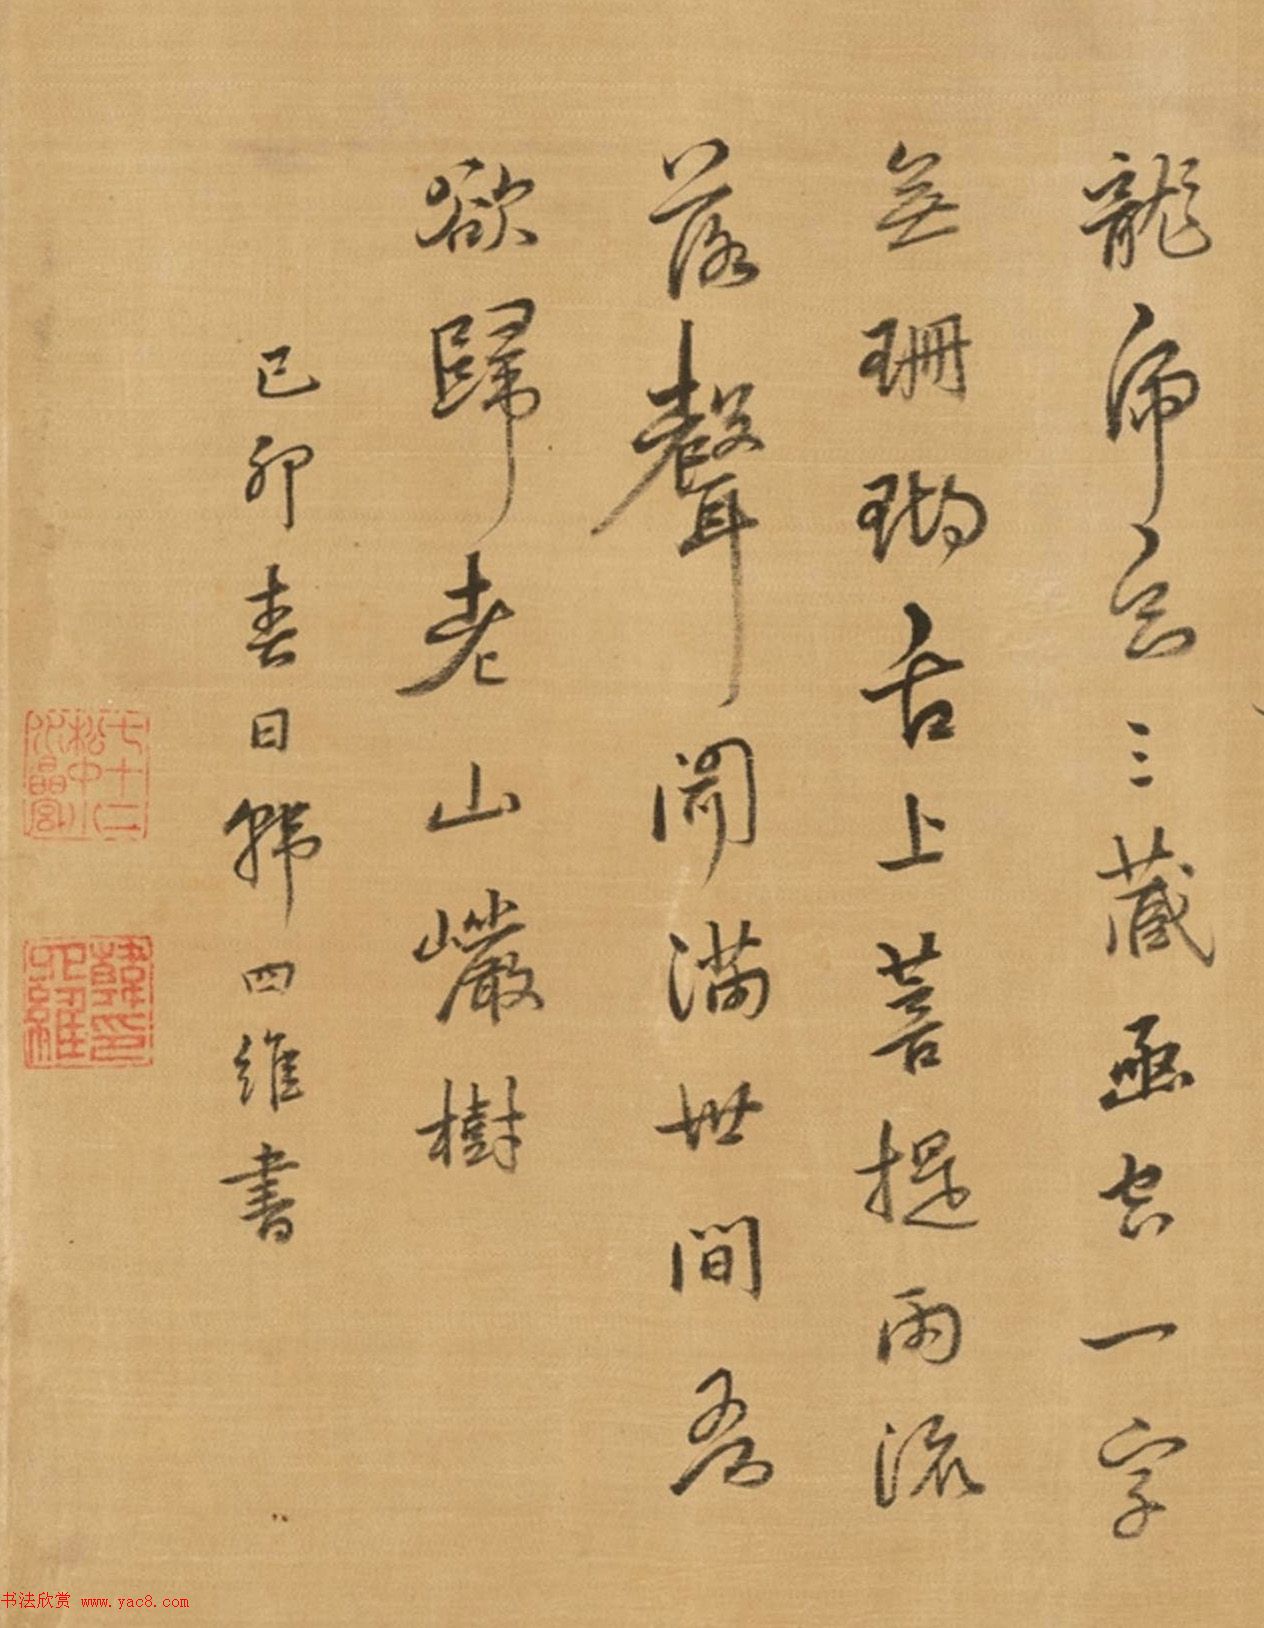 龍師云三藏函空一字
無珊瑚舌上菩提雨流
落聲聞滿世間吾
欲歸老山巖樹
己卯春日韓四維書
七十二松中小水晶宮
韓四維印
书法欣赏 www.yac8.com